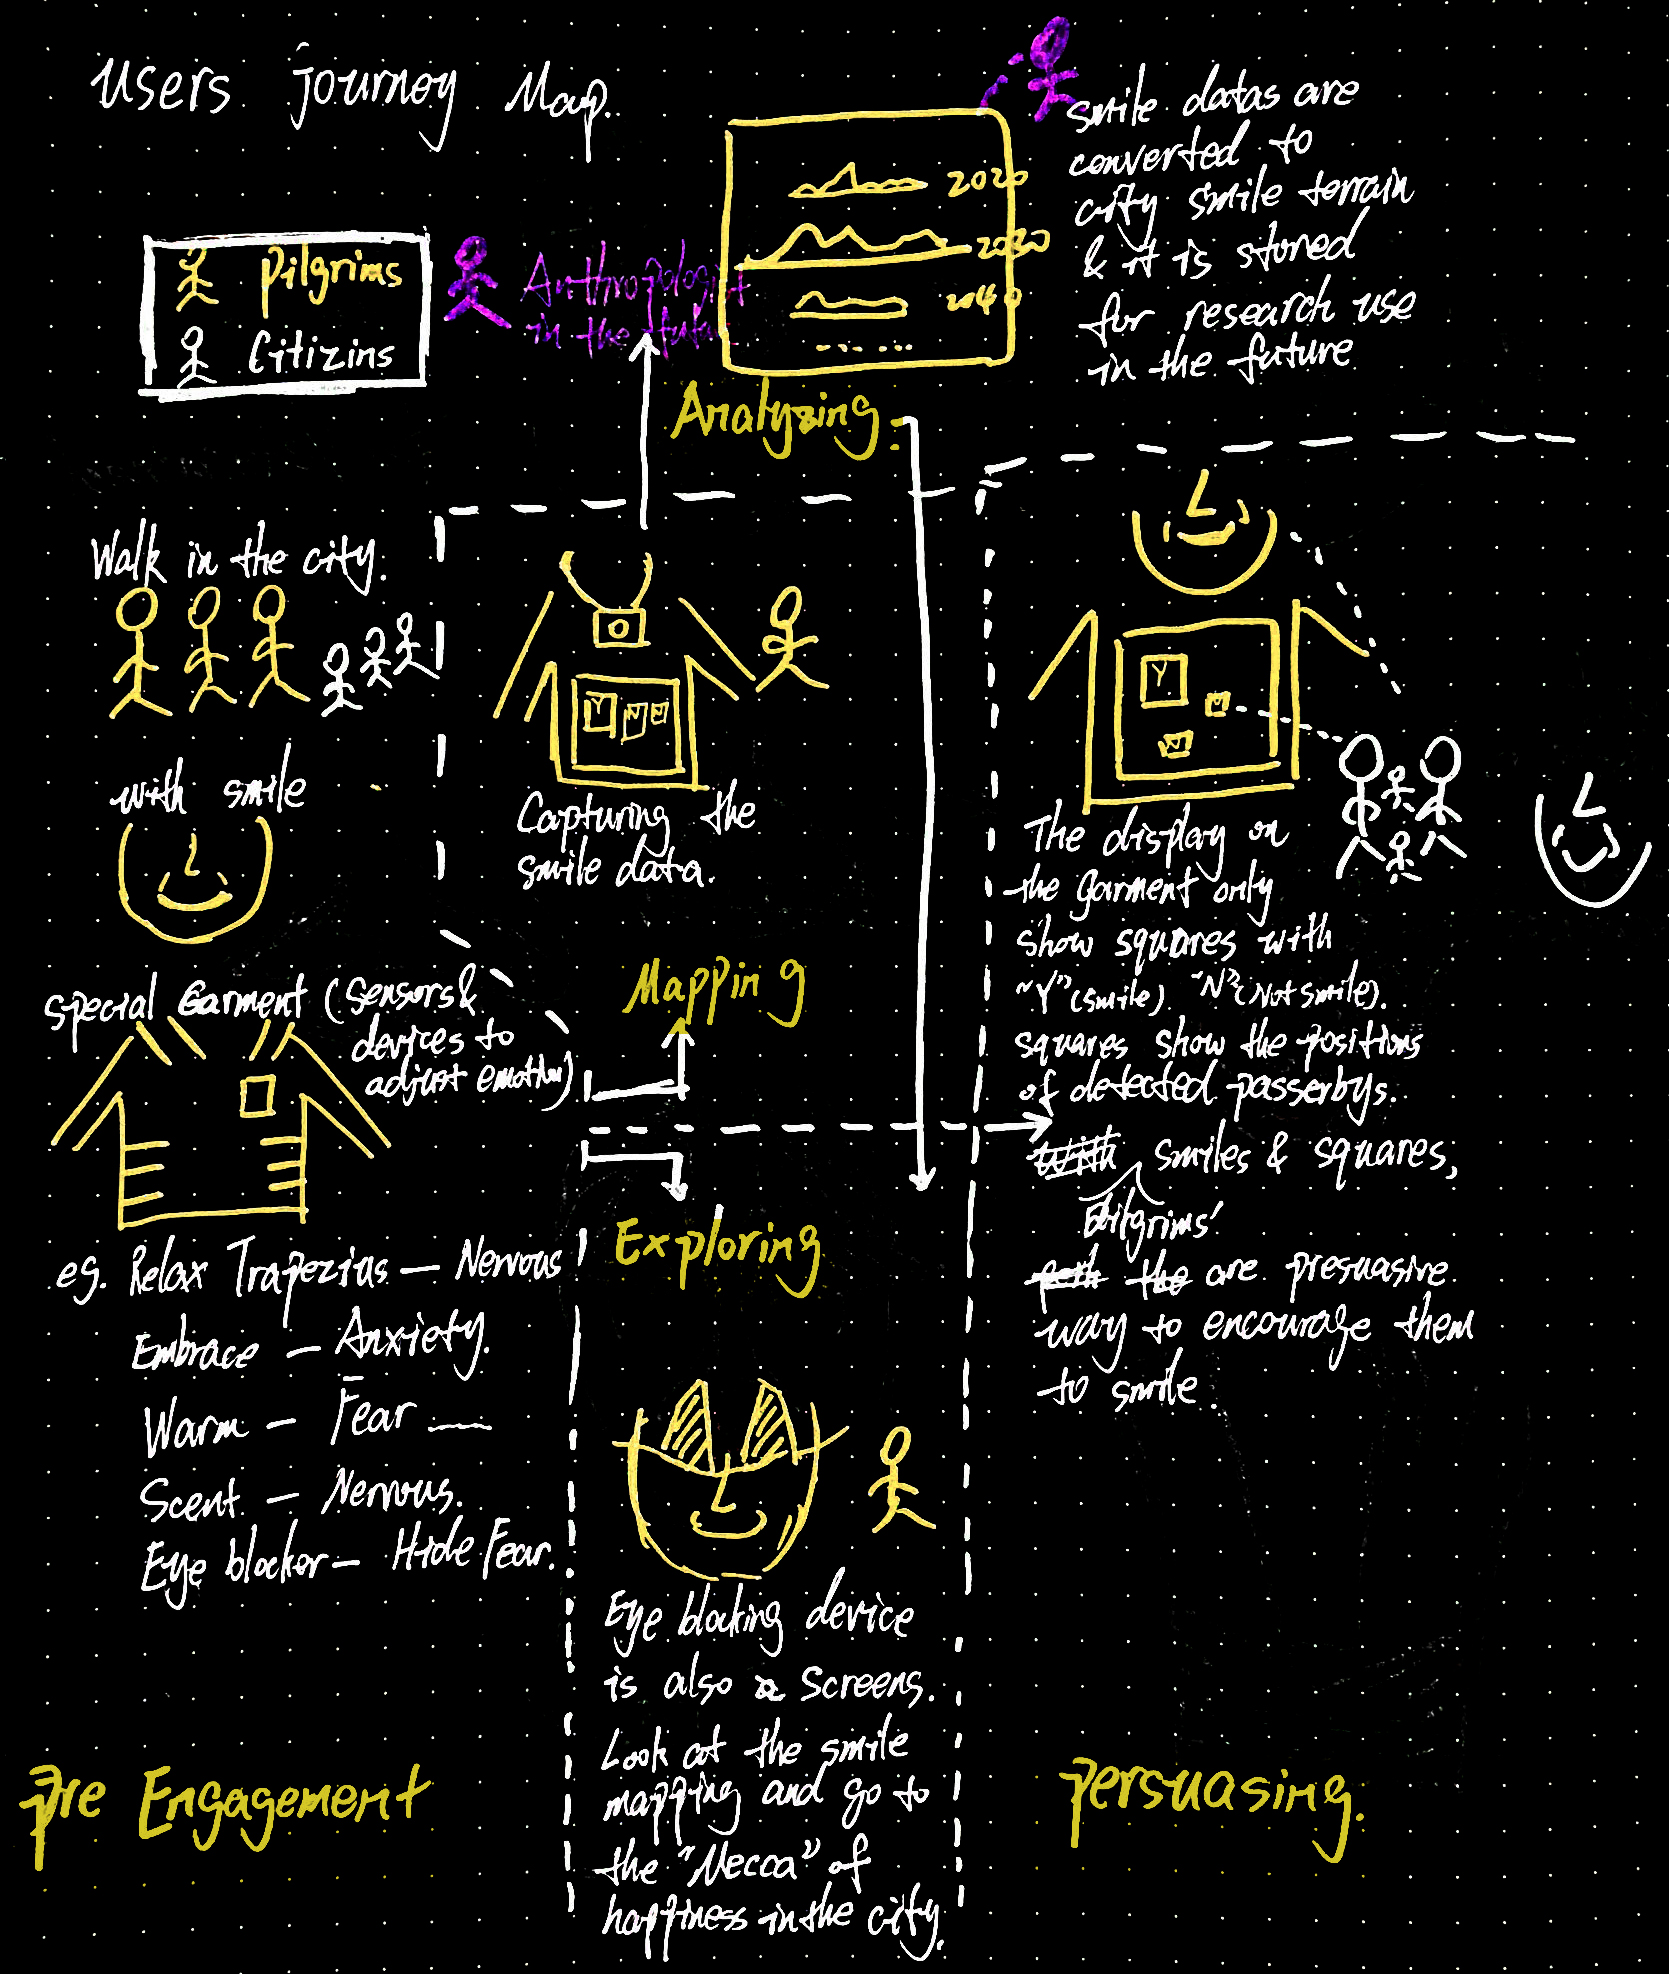 Users journey Map.
Pilgrims
Citizins
Anthropologist
in the future
2020
2030
2040
......
Analyzing
smile datas are
converted to
city smile terrain
& it is stored
for research use
in the future
Walk in the city.
with smile
Special Garment (Sensors &
devices to
adjust emotion)
eg. Relax Trapezius — Nervous
Embrace — Anxiety.
Warm — Fear
Scent — Nervous.
Eye blocker — Hide Fear.
Pre Engagement
Y N N
Capturing the
smile data.
Mapping
Exploring
Eye blocking device
is also screens.
Look at the smile
mapping and go to
the "Mecca" of
happiness in the city.
Y
N
N
The display on
the garment only
show squares with
"Y" (smile). "N" (Not smile).
squares show the positions
of detected passerbys.
with smiles & squares,
Pilgrims'
the are presuasive
way to encourage them
to smile.
persuasing.